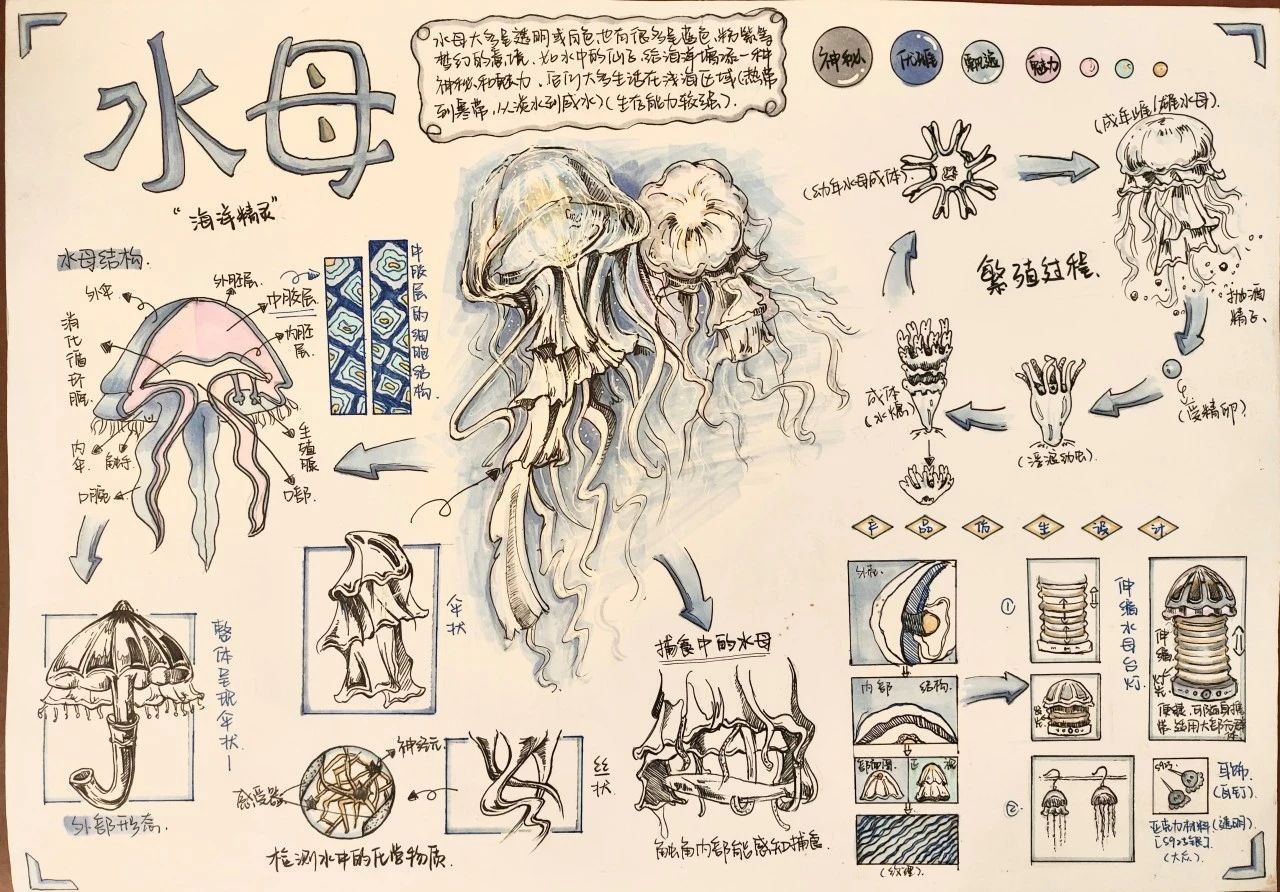 水母
“海洋精灵”
水母大多呈透明或白色,也有很多是蓝色、粉紫等
梦幻的意境,如水中的仙子,给海洋增添一种
神秘和魅力,它们大多生活在浅海区域(热带
到寒带,从淡水到咸水)(生存能力较强).
神秘
优雅
飘逸
魅力
水母结构.
外伞
外胚层.
中胶层.
内胚层.
消化循环腔.
内伞.
触手
口腕
生殖腺
口部.
中胶层的细胞结构.
(幼年水母成体)
(成年雌/雄水母).
繁殖过程.
抛洒
精子.
(受精卵)
(浮浪幼虫).
成体
(水螅).
产品仿生设计
整体呈现伞状.
外部形态.
伞状
丝状
神经元
感受器
检测水中的化学物质.
捕食中的水母
触角内部能感知捕食.
内部结构.
(纹理).
①
②
伸缩水母台灯.
伸缩
耳饰.
(耳钉).
亚克力材料(透明)
[S925银].